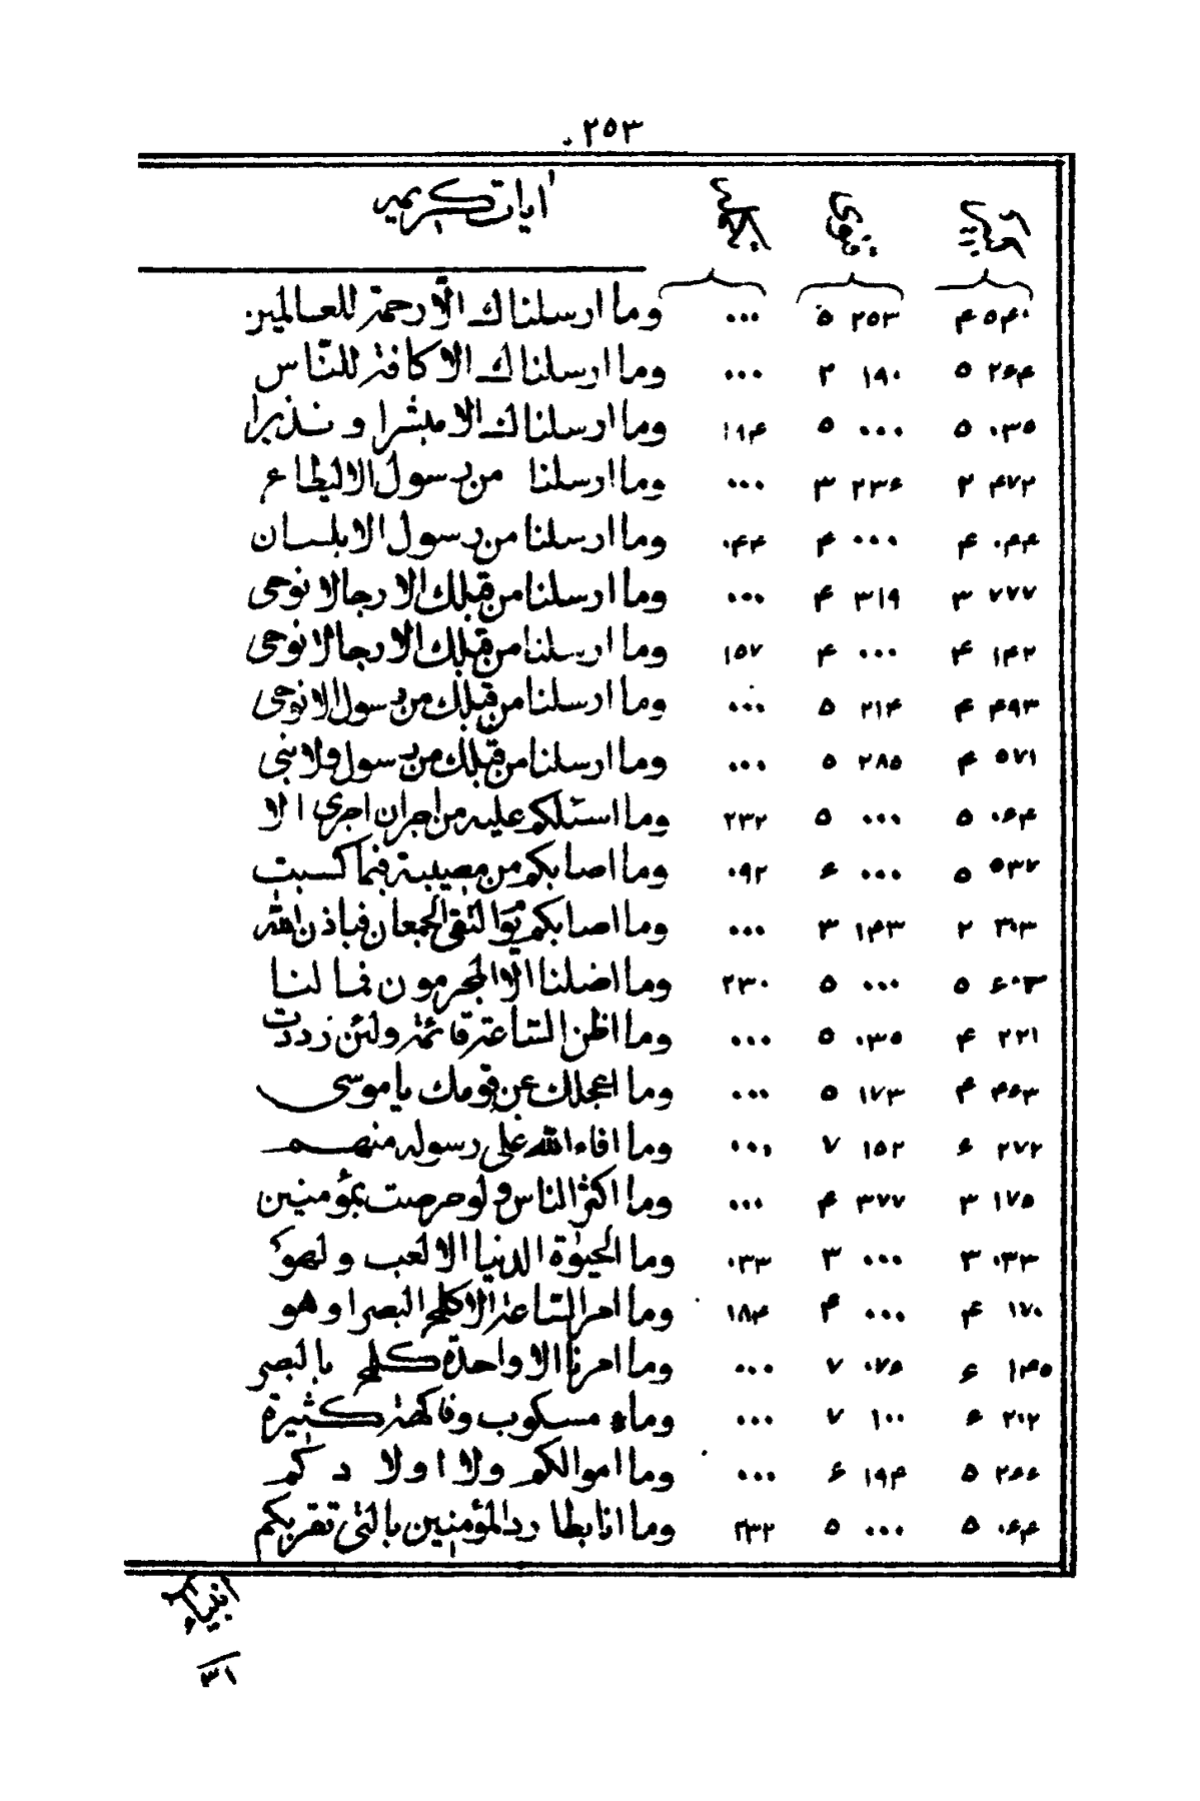 ٢٥٣
ايات كريمه
٤ ٥٤٠ ٥ ٢٥٣ ٠٠٠ وما ارسلناك الّا رحمة للعالمين
٥ ٢۶۴ ٢ ١٩٠ ٠٠٠ وما ارسلناك الا كافة للنّاس
٥ ٠٣٥ ٥ ٠٠٠ ١٩۴ وما ارسلناك الا مبشرا و نذيرا
٢ ۴٧٢ ٣ ٢٣۶ ٠٠٠ وما ارسلنا من رسول الا ليطاع
۴ ٠۴۴ ۴ ٠٠٠ ٠۴۴ وما ارسلنا من رسول الا بلسان
٣ ٧٧٧ ۴ ٣١٩ ٠٠٠ وما ارسلنا من قبلك الا رجالا نوحى
۴ ١۴٢ ۴ ٠٠٠ ١٥٧ وما ارسلنا من قبلك الا رجالا نوحى
۴ ۴٩٣ ٥ ٢١۴ ٠٠٠ وما ارسلنا من قبلك من رسول الا نوحى
۴ ٥٧١ ٥ ٢٨٥ ٠٠٠ وما ارسلنا من قبلك من رسول ولا نبى
٥ ٠۶۴ ٥ ٠٠٠ ٢٣٢ وما اسئلكم عليه من اجر ان اجرى الا
٥ ٥٣٧ ۶ ٠٠٠ ٠٩٢ وما اصابكم من مصيبة فبما كسبت
٢ ٣٠٣ ٣ ١۴٣ ٠٠٠ وما اصابكم يوم التقى الجمعان فباذن الله
٥ ۶٠٣ ٥ ٠٠٠ ٢٣٠ وما اضلنا الا المجرمون فما لنا
۴ ٢٢١ ٥ ٠٣٥ ٠٠٠ وما اظن الساعة قائمة ولئن رددت
۴ ۴۶٣ ٥ ١٧٣ ٠٠٠ وما اعجلك عن قومك يا موسى
۶ ٢٧٢ ٧ ١٥٢ ٠٠٠ وما افاء الله على رسوله منهم
٣ ١٧٥ ۴ ٣٧٧ ٠٠٠ وما اكثر الناس ولو حرصت بمؤمنين
٣ ٠٣٣ ٣ ٠٠٠ ٠٣٣ وما الحيوٰة الدنيا الا لعب ولهو
۴ ١٧٠ ۴ ٠٠٠ ١٨۴ وما امر الساعة الا كلمح البصر او هو
۶ ١۴٥ ٧ ٠٧۶ ٠٠٠ وما امرنا الا واحدة كلمح بالبصر
۶ ٢٠٢ ٧ ١٠٠ ٠٠٠ وماء مسكوب وفاكهة كثيرة
٥ ٢۶۶ ۶ ١٩۴ ٠٠٠ وما اموالكم ولا اولادكم
٥ ٠۶۴ ٥ ٠٠٠ ٢٣٢ وما انا بطارد المؤمنين بالتى تقربكم
انبياء
٣١